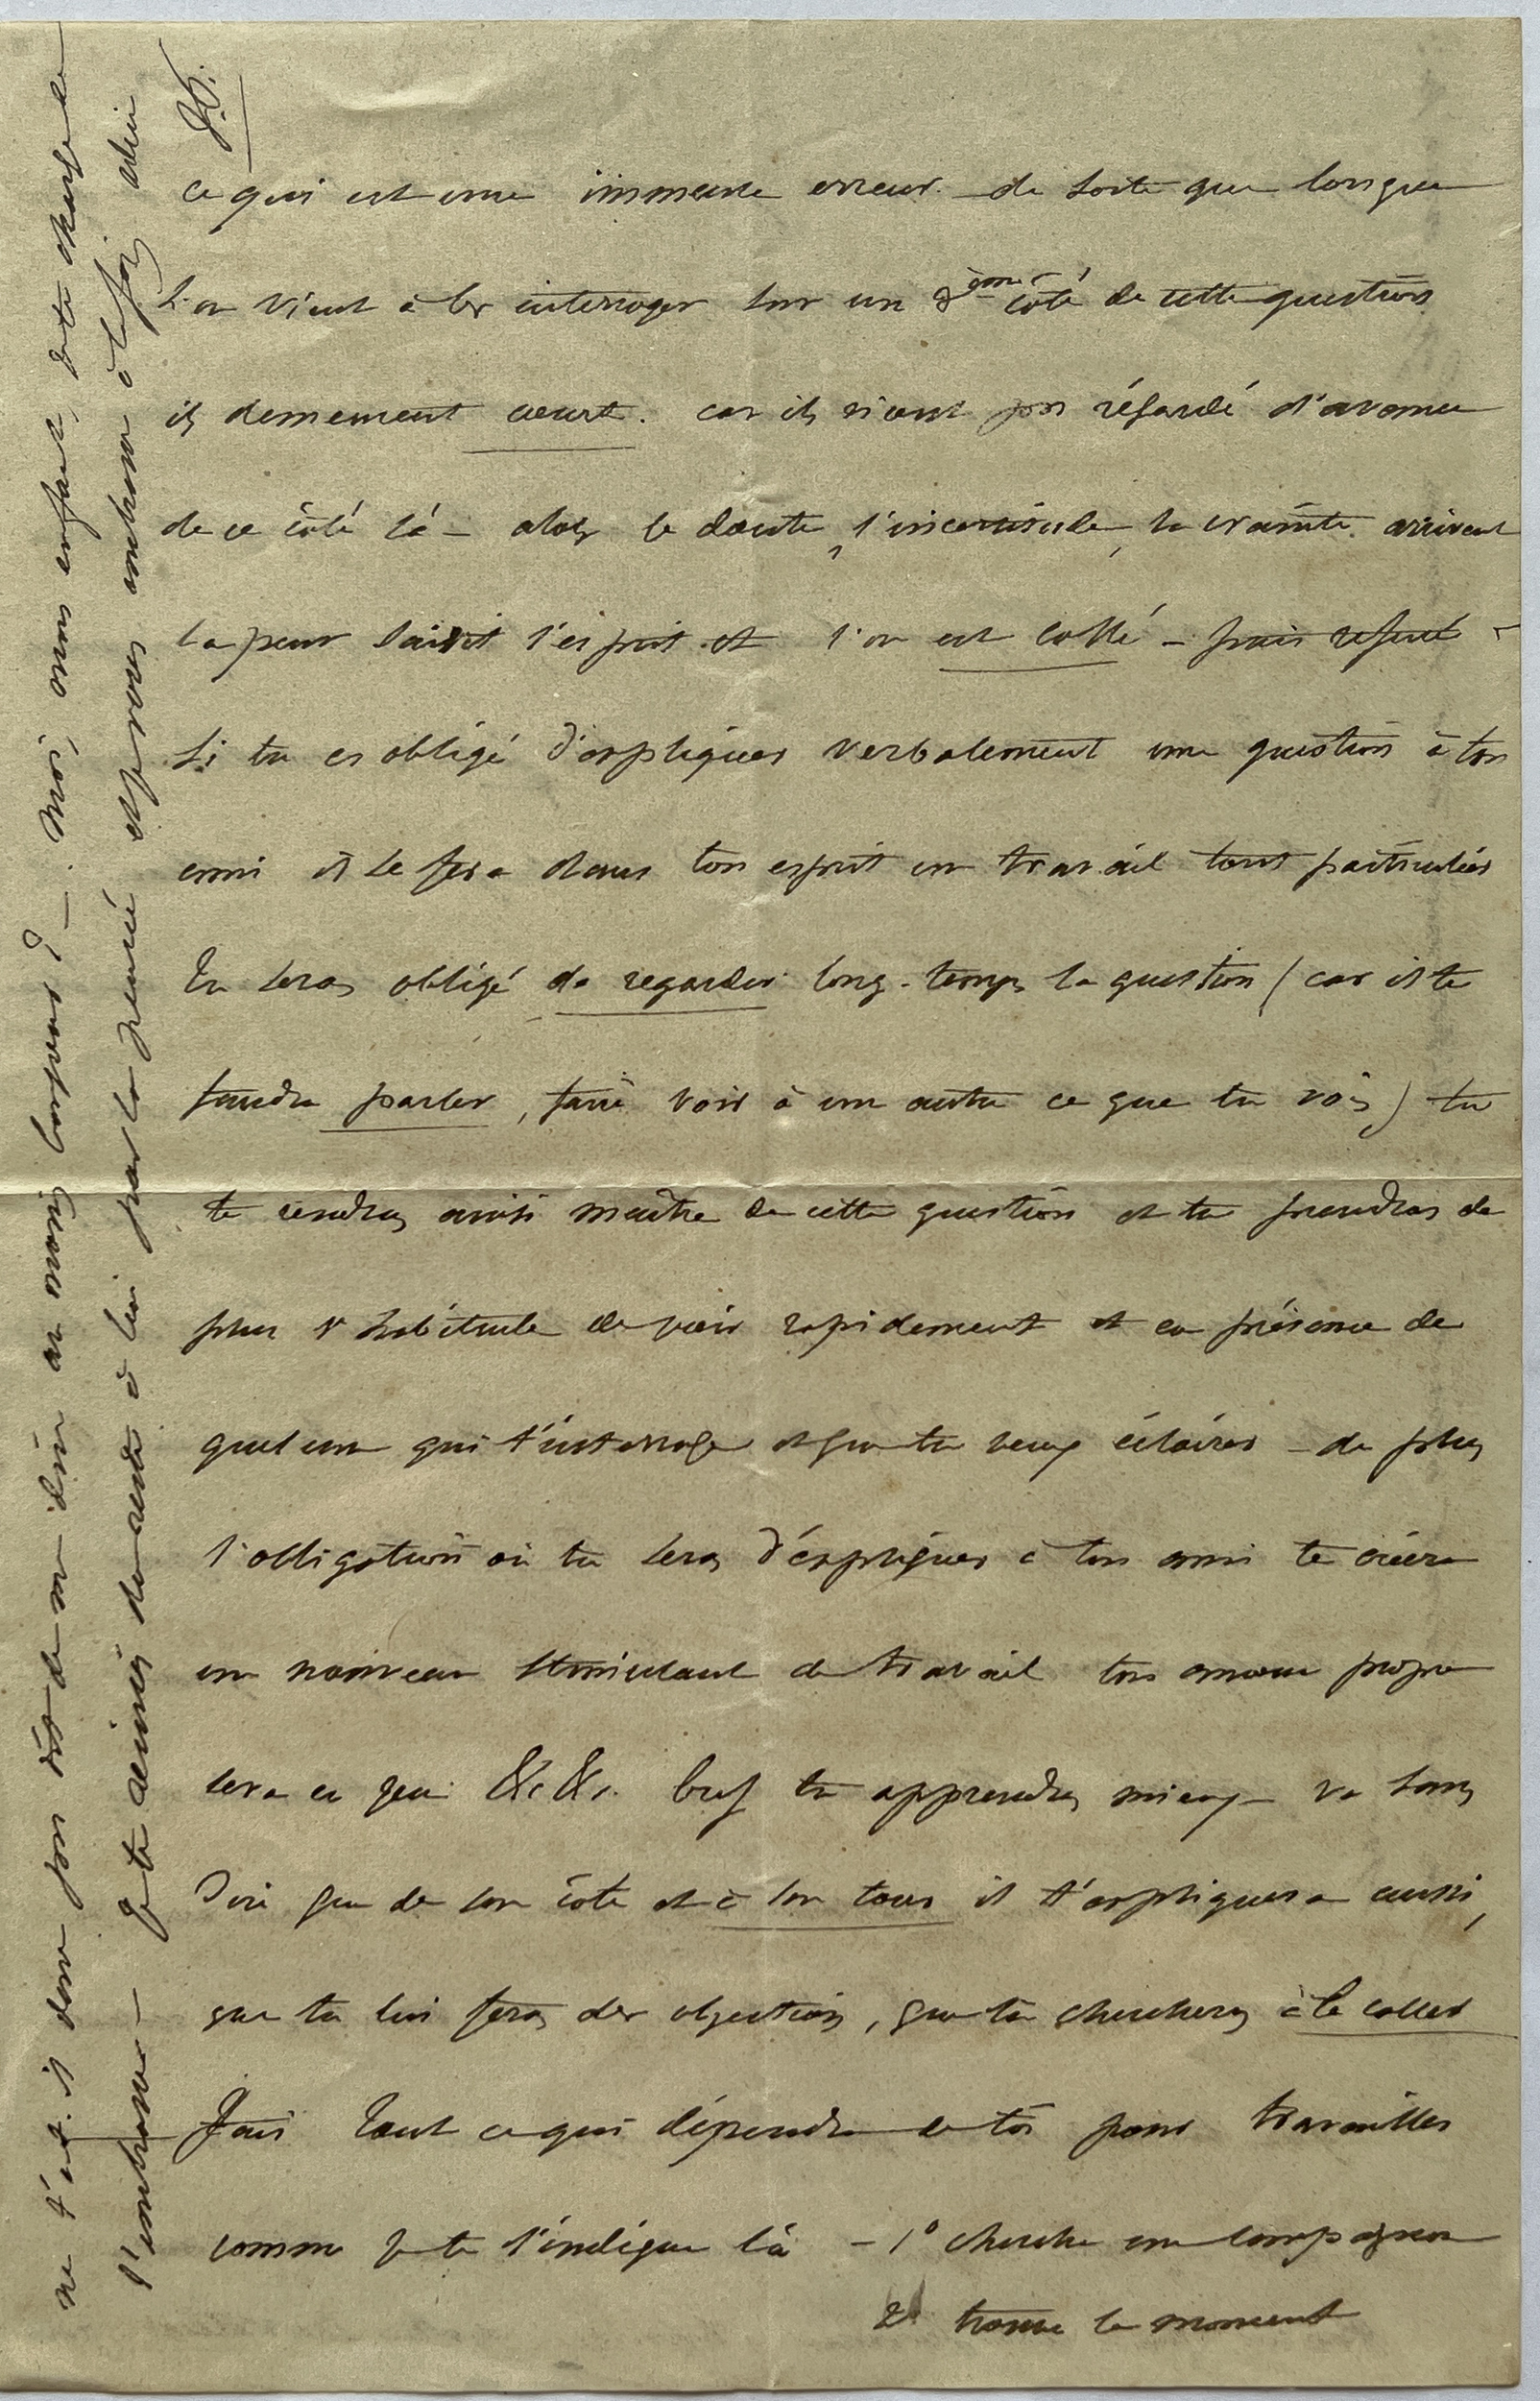 ce qui est une immense erreur. de sorte que lorsque
l'on vient à les interroger sur un 2ème côté de cette question
ils demeurent court. car ils n'ont pas régardé d'avance
de ce côté là – alors le doute, l'incertitude, la crainte arrivent
la peur saisit l'esprit et l'on est collé –
Si tu es obligé d'expliquer verbalement une question à ton
ami il se fera dans ton esprit un travail tout particulier
Tu seras obligé de regarder long-temps la question (car il te
faudra parler, faire voir à un autre ce que tu vois) tu
te rendras ainsi maître de cette question et tu prendras de
plus l'habitude de voir rapidement et en présence de
quelqu'un qui t'interroge et que tu veux éclairer – de plus
l'obligation où tu seras d'expliquer à ton ami te créera
un nouveau stimulant de travail ton amour propre
sera en jeu &c &c. bref tu apprendras mieux – va sans
dire que de son côté et à son tour il t'expliquera aussi,
que tu lui feras des objections, que tu chercheras à le coller
Fais tout ce qui dépendra de toi pour travailler
comme je te l'indique là – 1° cherche un compagnon
2° trouve le moment
ne t'est-il donc pas dit de me dire au moins bonjour ? – . Moi, mon enfant,
l'embrasser – Je te demande à lui par la pensée et je vous embrasse à la fois adieu